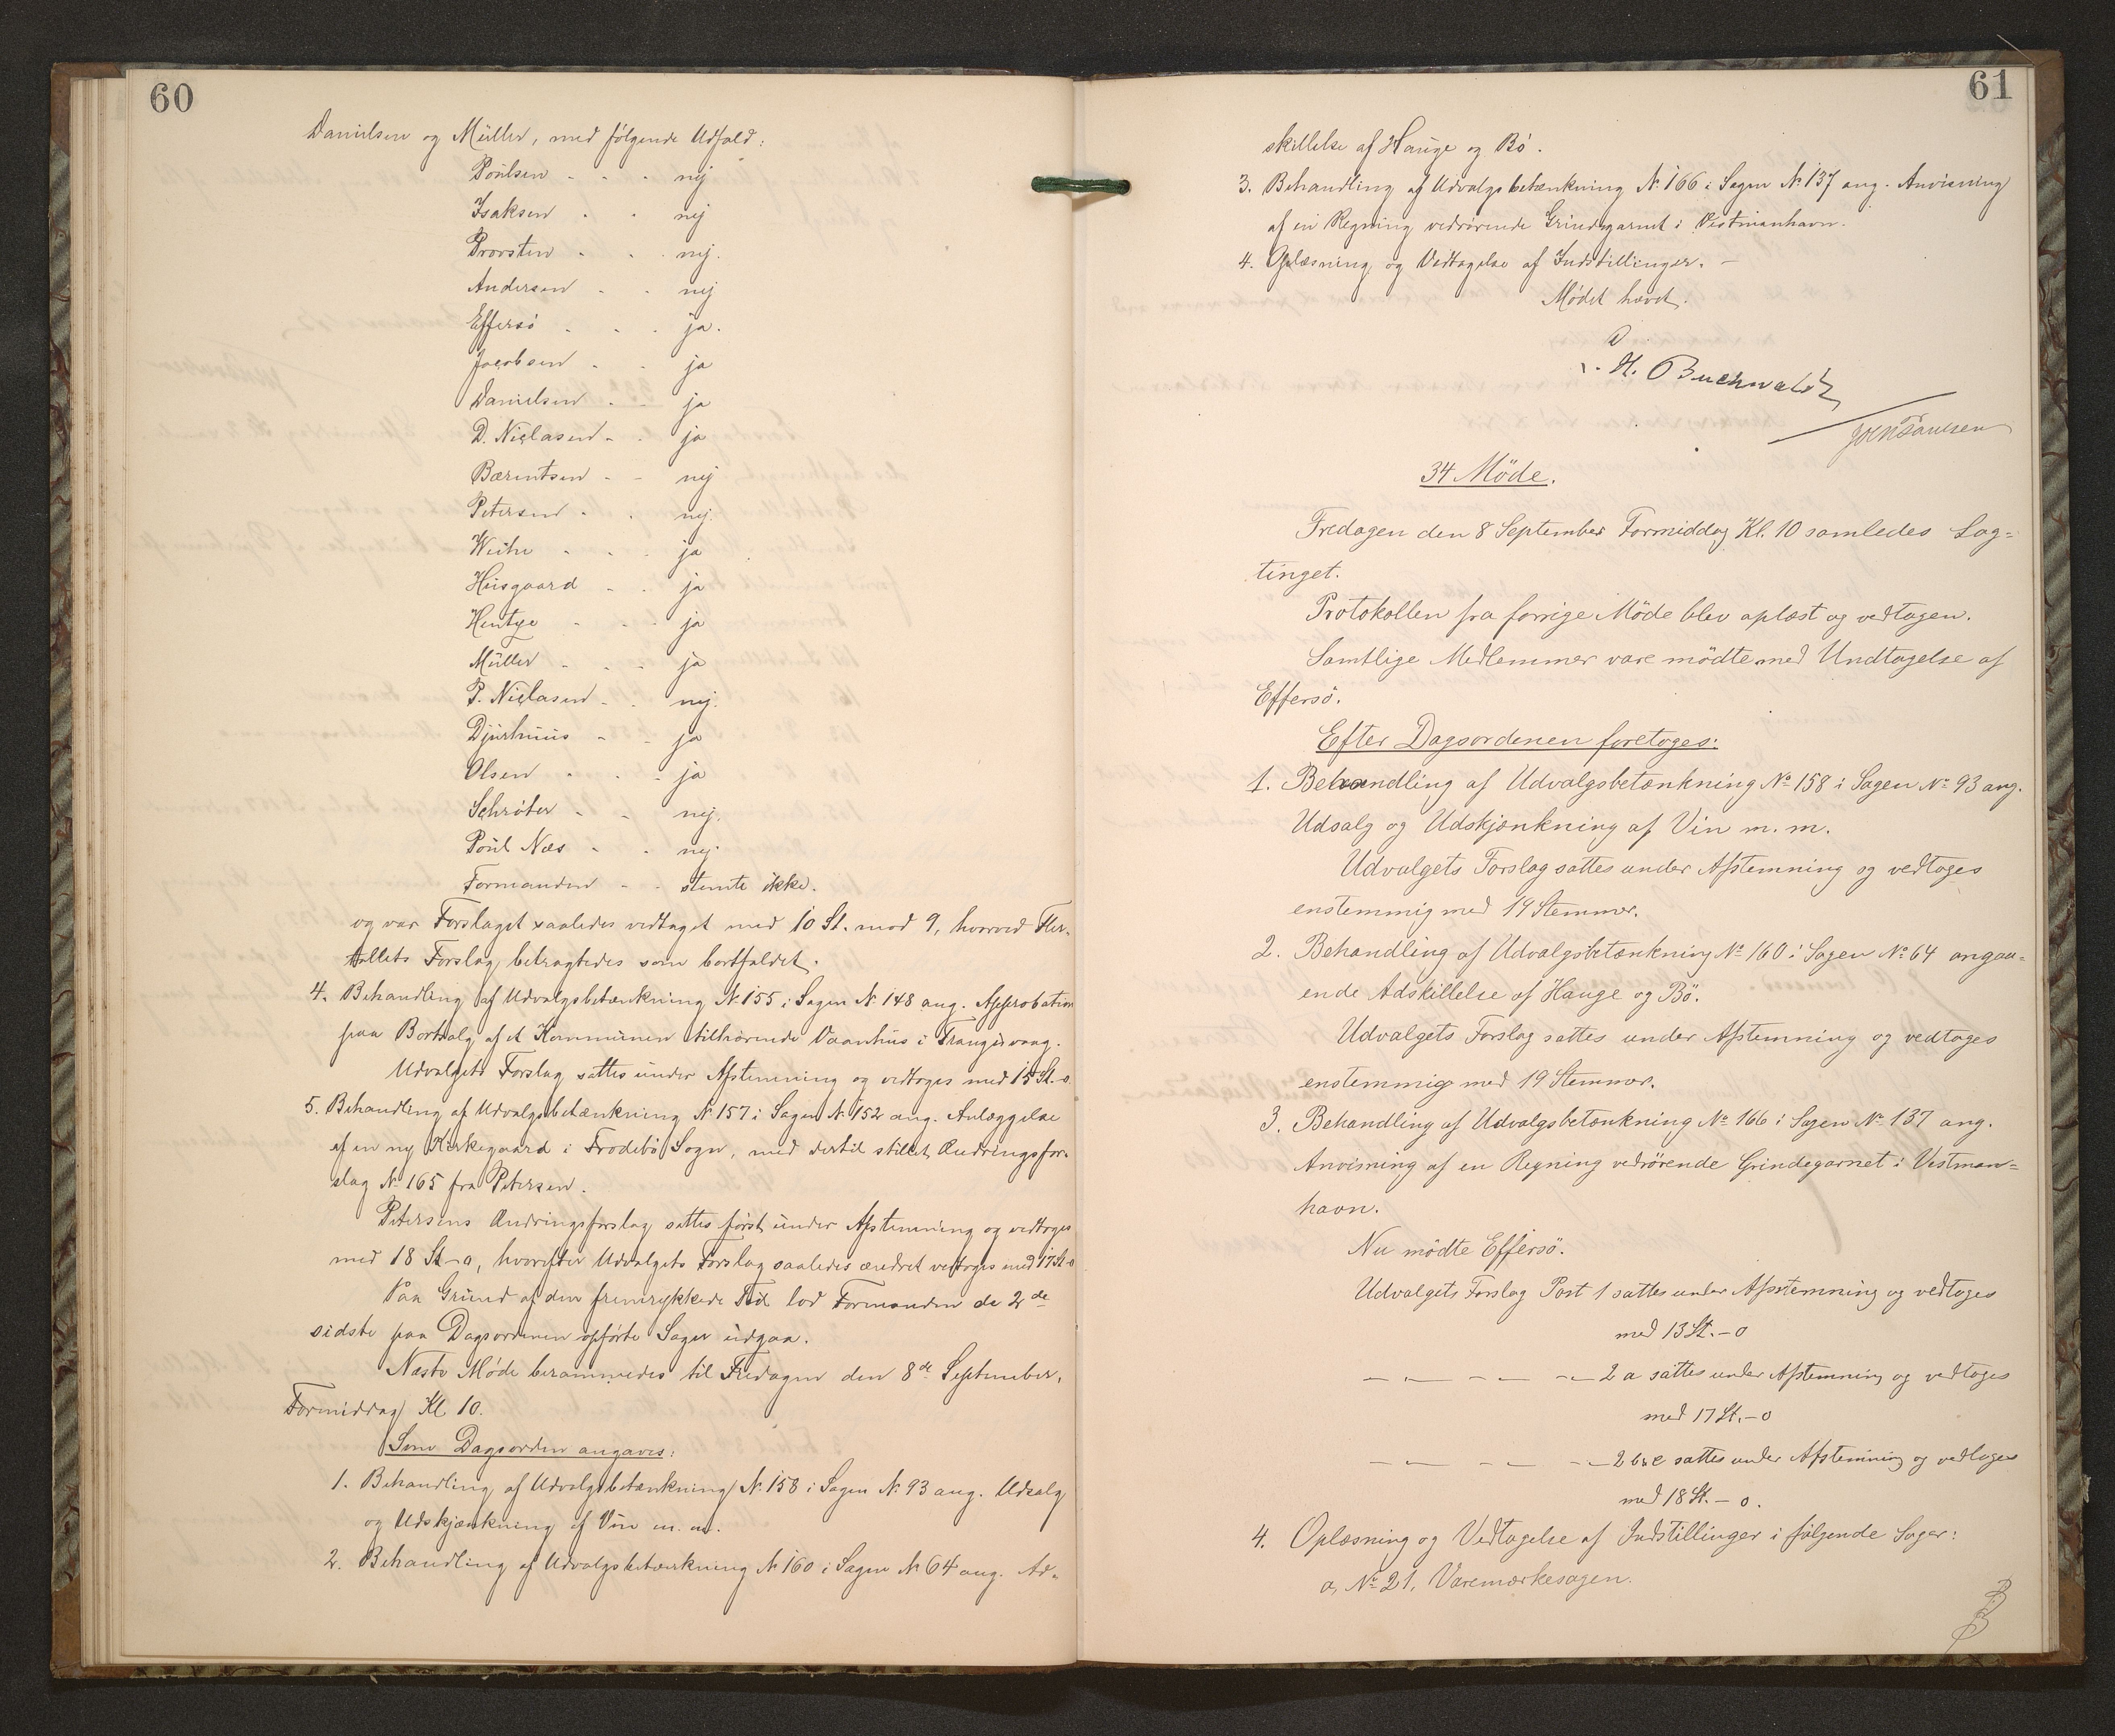 60
Danielsen og Müller, med følgende Udfald:
Poulsen - - - nej
Isaksen - - nej
Provsten - - - nej.
Andersen - - nej
Effersö - - - ja.
Jacobsen - - ja
Danielsen - - ja
D. Niclasen - - ja
Bærentsen - - nej
Petersen - - nej.
Weihe - - - ja
Husgaard - - ja
Hentze - - - ja
Müller - - - ja
P. Niclasen - - nej.
Djurhuus - - ja
Olsen - - - ja
Schröter - - nej.
Poul Næs - - nej.
Formanden - - stemte ikke.
og var Forslaget saaledes vedtaget med 10 St. mod 9, hvorved Fler-
tallets Forslag betragtedes som bortfaldet.
4. Behandling af Udvalgsbetænkning No 155 i Sagen No 148 ang. Approbation
paa Bortsalg af et Kommunen tilhørende Vaanhus i Trangisvaag.
Udvalgets Forslag sattes under Afstemning og vedtoges med 15 St.-0.
5. Behandling af Udvalgsbetænkning No 157 i Sagen No 152 ang. Anlæggelse
af en ny Kirkegaard i Frodebö Sogn, med dertil stillet Ændringsfor-
slag No 165 fra Petersen.
Petersens Ændringsforslag sattes først under Afstemning og vedtoges
med 18 St-0, hvorefter Udvalgets Forslag saaledes ændret vedtoges med 17 St-0
Paa Grund af den fremrykkede Tid lod Formanden de 2de
sidste paa Dagsordenen opførte Sager udgaa.
Næste Møde berammedes til Fredagen den 8de September,
Formiddag Kl 10.
Som Dagsorden angaves:
1. Behandling af Udvalgsbetænkning No 158 i Sagen No 93 ang. Udsalg
og Udskjænkning af Vin m. m.
2. Behandling af Udvalgsbetænkning No 160 i Sagen No 64 ang. Ad-
61
skillelse af Hauge og Bö.
3. Behandling af Udvalgsbetænkning No 166 i Sagen No 137 ang. Anvisning
af en Regning vedrørende Grindegarnet i Vestmanhavn.
4. Oplæsning og Vedtagelse af Indstillinger. -
Mødet hævet.
H. Buchwald
34 Möde.
Fredagen den 8 September Formiddag Kl. 10 samledes Lag=
tinget.
Protokollen fra forrige Möde blev oplæst og vedtagen.
Samtlige Medlemmer vare mödte med Undtagelse af
Effersö.
Efter Dagsordenen foretoges:
1. Behandling af Udvalgsbetænkning No 158 i Sagen No 93 ang.
Udsalg og Udskjænkning af Vin m. m.
Udvalgets Forslag sattes under Afstemning og vedtoges
enstemmig med 19 Stemmer.
2. Behandling af Udvalgsbetænkning No 160 i Sagen No 64 angaa=
ende Adskillelse af Hauge og Bö.
Udvalgets Forslag sattes under Afstemning og vedtoges
enstemmig med 19 Stemmer.
3. Behandling af Udvalgsbetænkning No 166 i Sagen No 137 ang.
Anvisning af en Regning vedrörende Grindegarnet i Vestman=
havn.
Nu mödte Effersö.
Udvalgets Forslag Post 1 sattes under Afstemning og vedtoges
med 13 St. - 0
- - - - 2 a sattes under Afstemning og vedtoges
med 17 St. - 0
- - - - 2 b & c sattes under Afstemning og vedtoges
med 18 St. - 0.
4. Oplæsning og Vedtagelse af Indstillinger i følgende Sager:
a, No 21, Varemærkesagen.